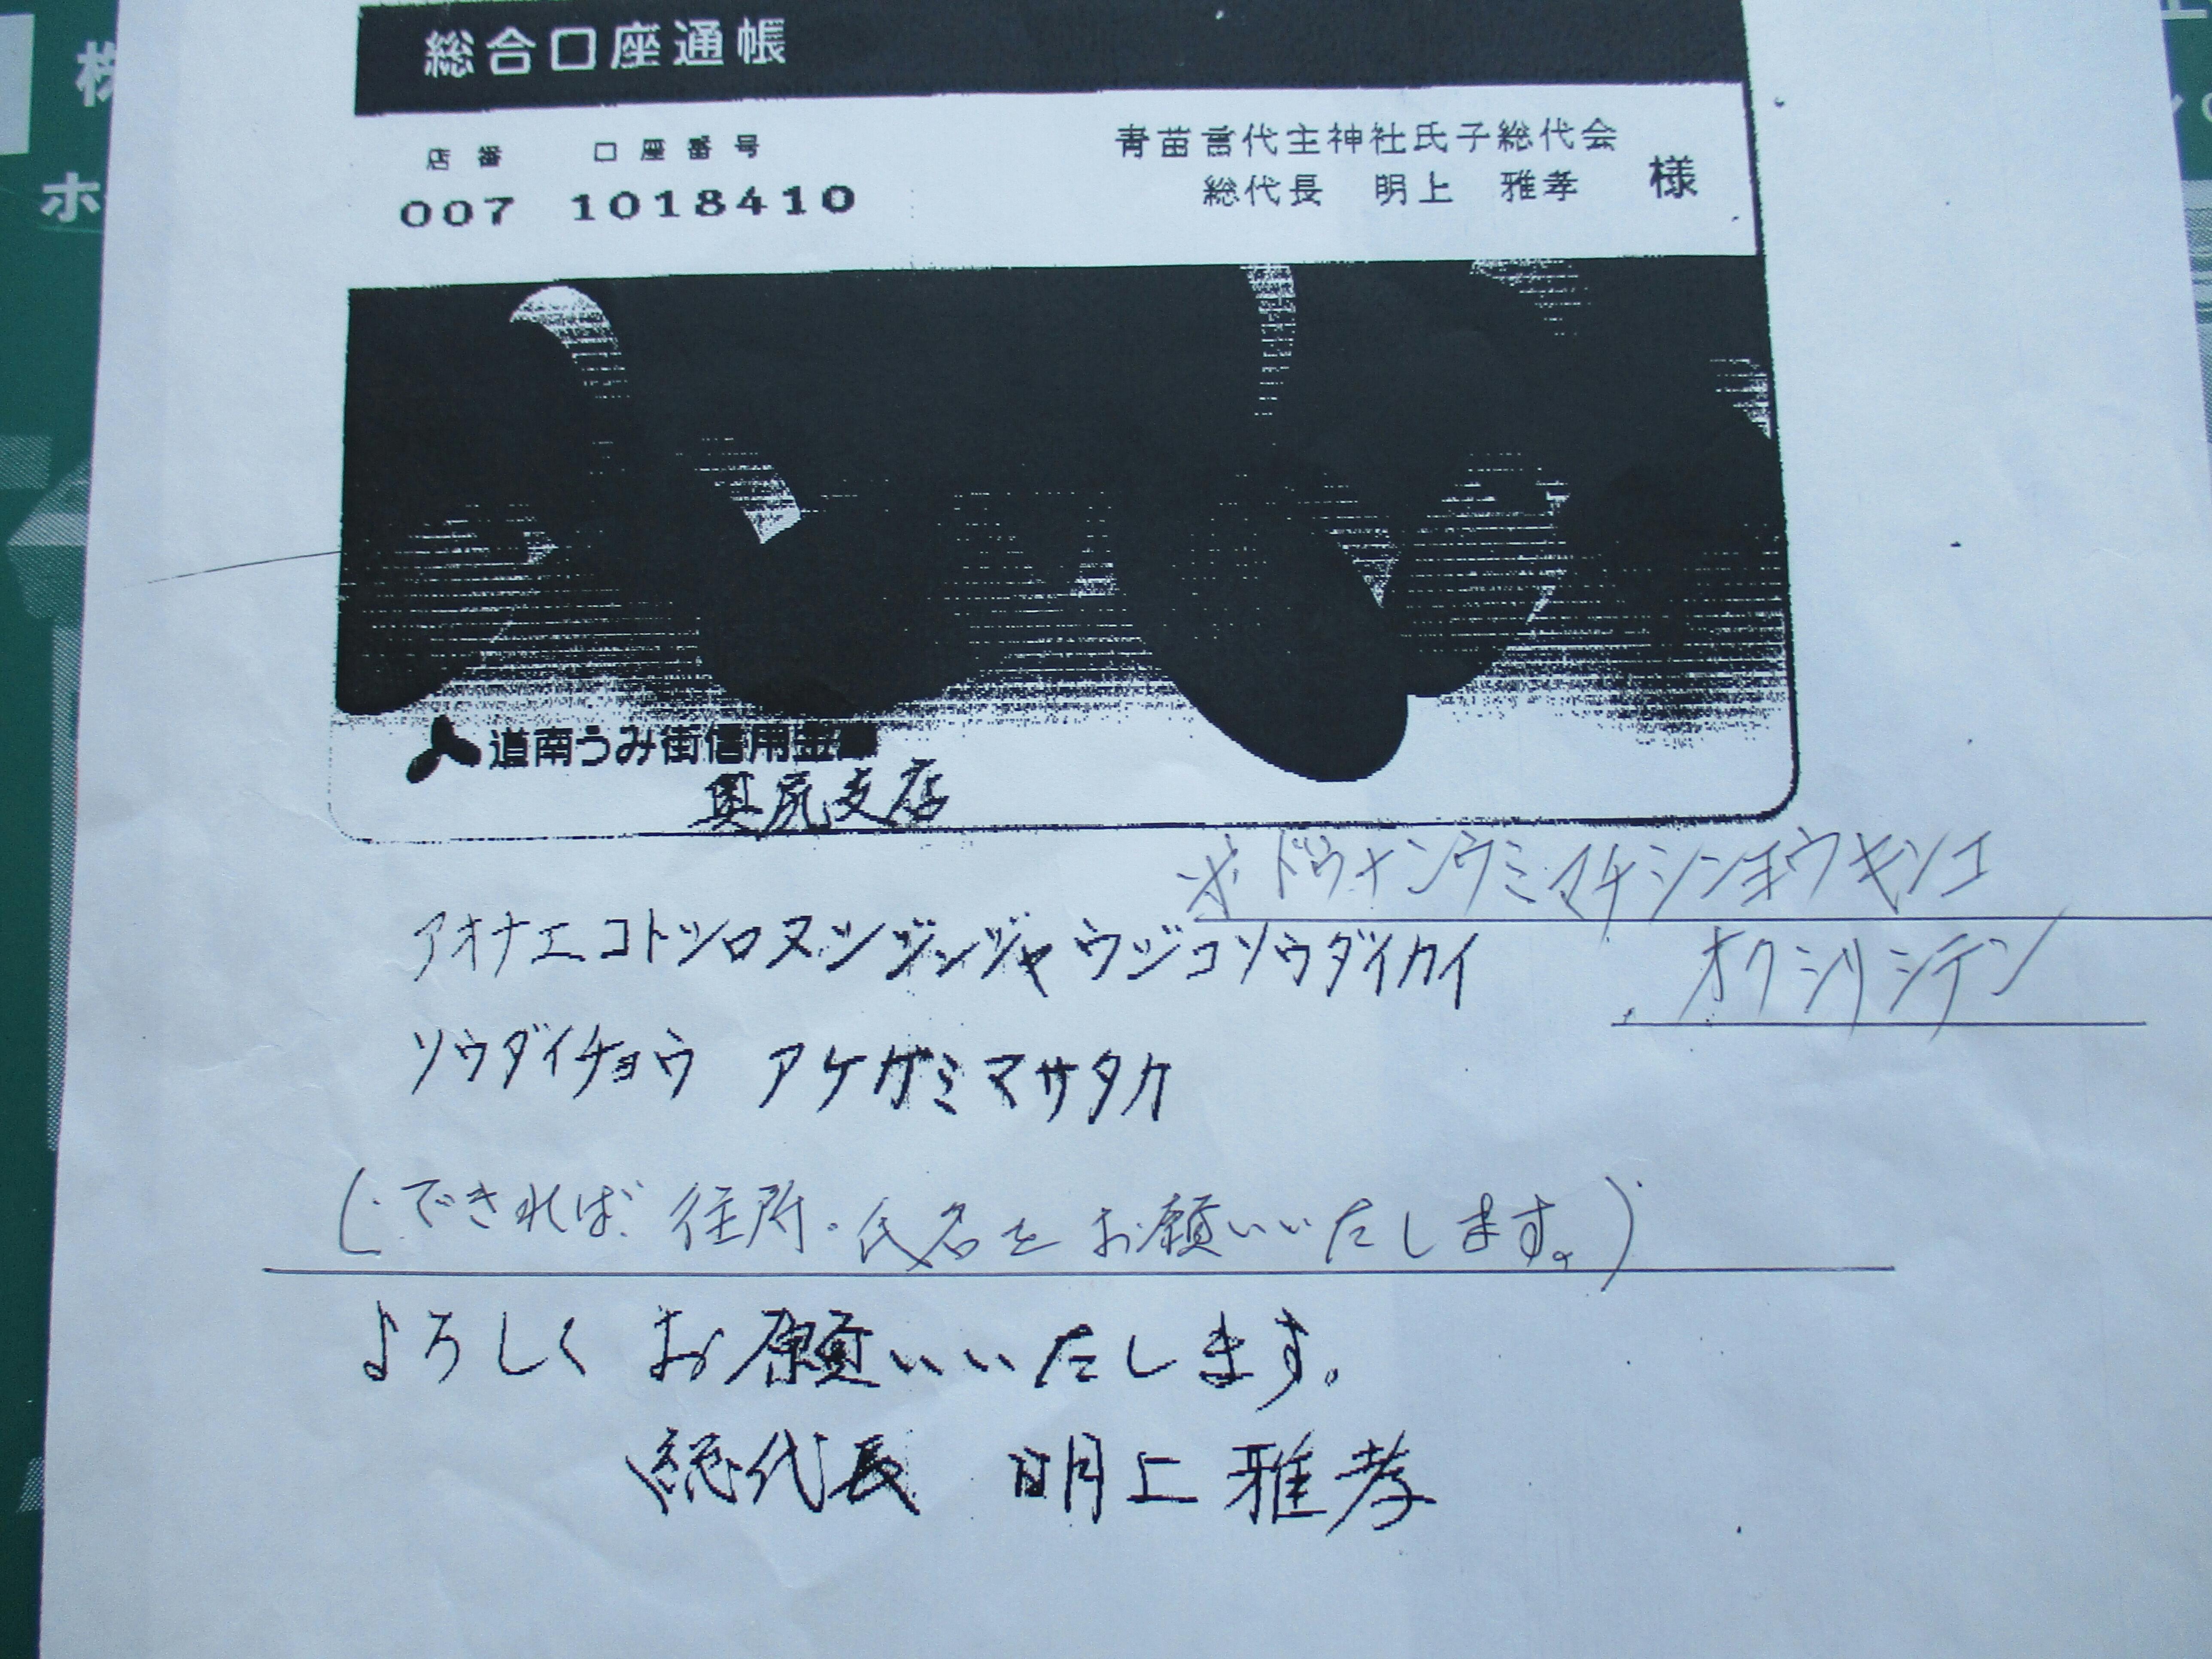 総合口座通帳
店番 口座番号
007 1018410
青苗言代主神社氏子総代会
総代長 明上 雅孝 様
道南うみ街信用金庫
奥尻支店
※ ドウナンウミマチシンヨウキンコ
アオナエコトシロヌシジンジャウジコソウダイカイ
オクシリシテン
ソウダイチョウ アケガミマサタカ
(できれば、住所・氏名をお願いいたします。)
よろしくお願いいたします。
総代長 明上雅孝
株
ホ